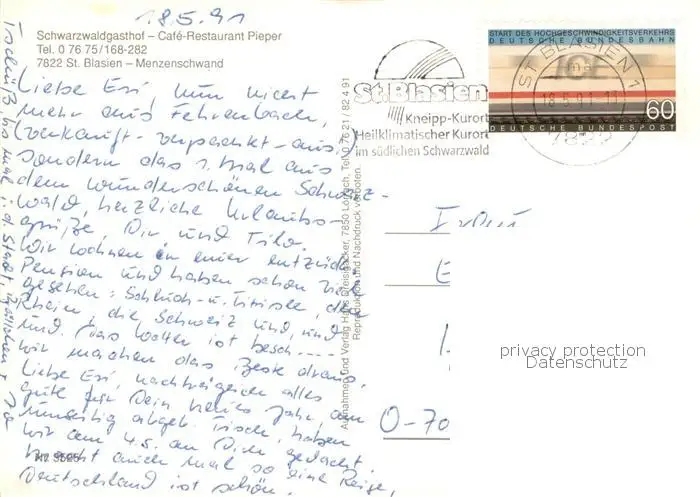 18.5.91
Schwarzwaldgasthof – Café-Restaurant Pieper
Tel. 0 76 75/168-282
7822 St. Blasien – Menzenschwand
Liebe Evi, nun nicht
mehr aus Fehrenbach,
(verkauft - verpachtet - aus)
sondern das 1. mal aus
dem wunderschönen Schwarz-
wald, herzliche Urlaubs-
grüße, Dir und Tilo.
Wir wohnen in einer entzück.
Pension und haben schon viel
gesehen: Schluch- u. Titisee, den
Rhein, die Schweiz und, und
und. Das Wetter ist besch....
wir machen das Beste draus.
Liebe Evi, nachträglich alles
Gute für Dein neues Jahr, am
haben
wir am 4.5. an Dich gedacht.
Macht auch mal so eine Reise,
Deutschland ist schön.
Tschüß bis mal i. d. Stadt,
Nr. 9595
Aufnahmen und Verlag Hans Dreisigacker, 7850 Lörrach, Tel. 0 76 21 / 82 4 91
Reproduktion und Nachdruck verboten.
St. Blasien
Kneipp-Kurort
Heilklimatischer Kurort
im südlichen Schwarzwald
ST BLASIEN 1
18.5.91
7822
START DES HOCHGESCHWINDIGKEITSVERKEHRS
DEUTSCHE BUNDESBAHN
ICE
60
DEUTSCHE BUNDESPOST
O-70
privacy protection
Datenschutz